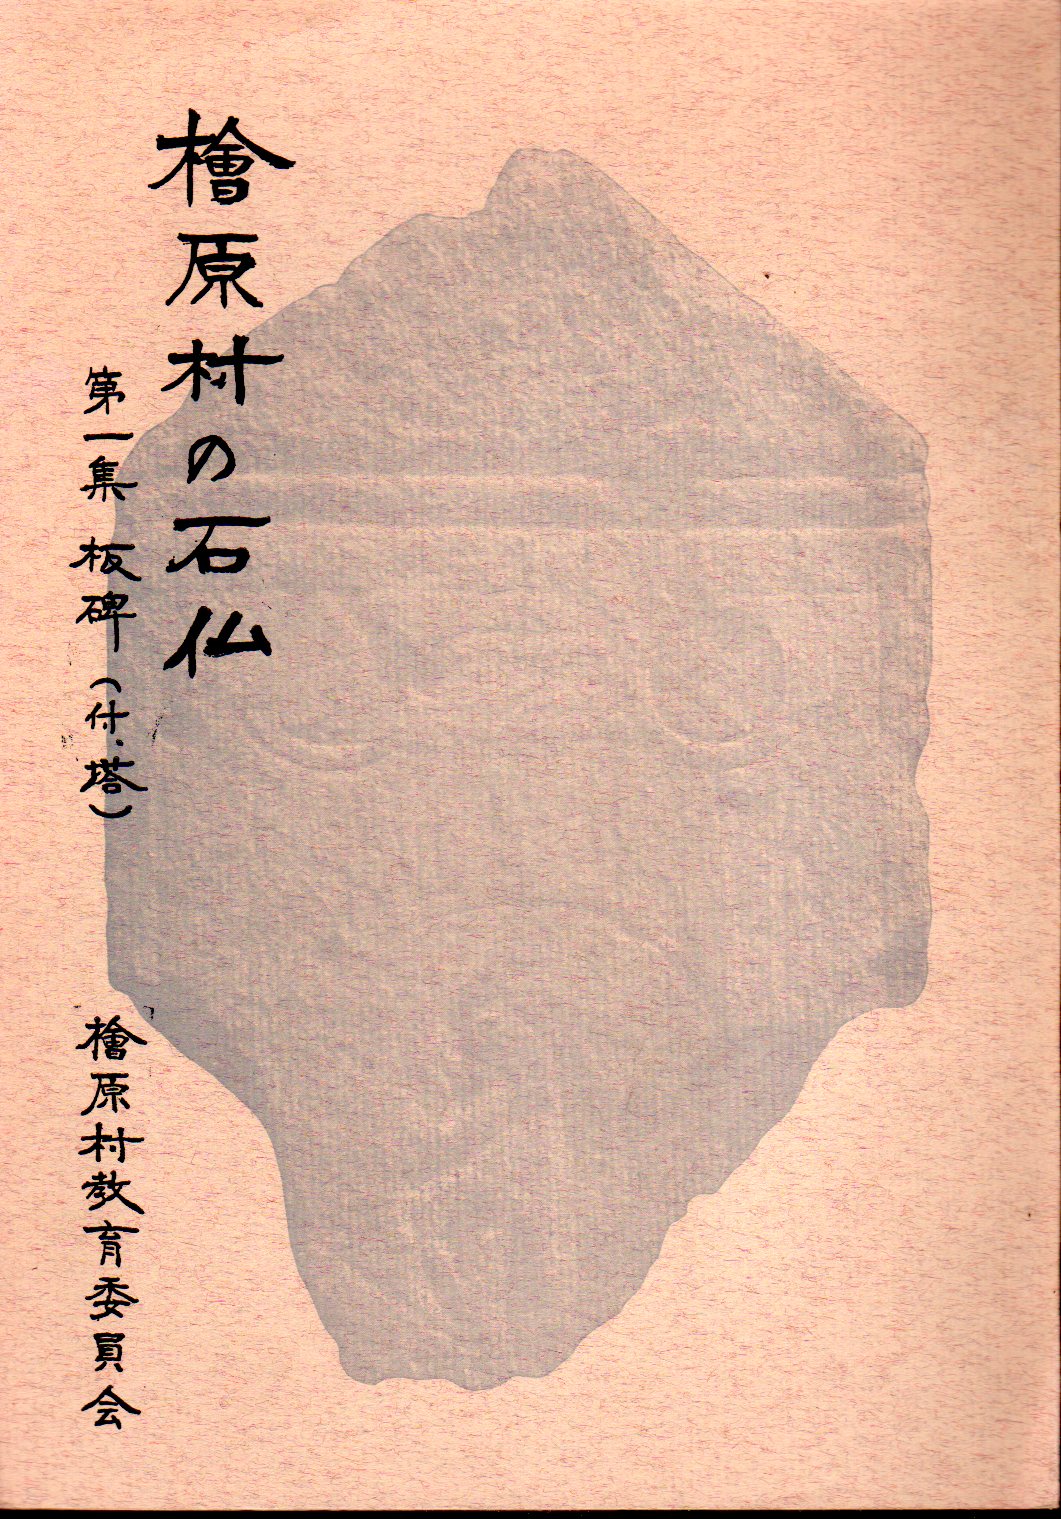 檜原村の石仏
第一集 板碑（付・塔）
檜原村教育委員会